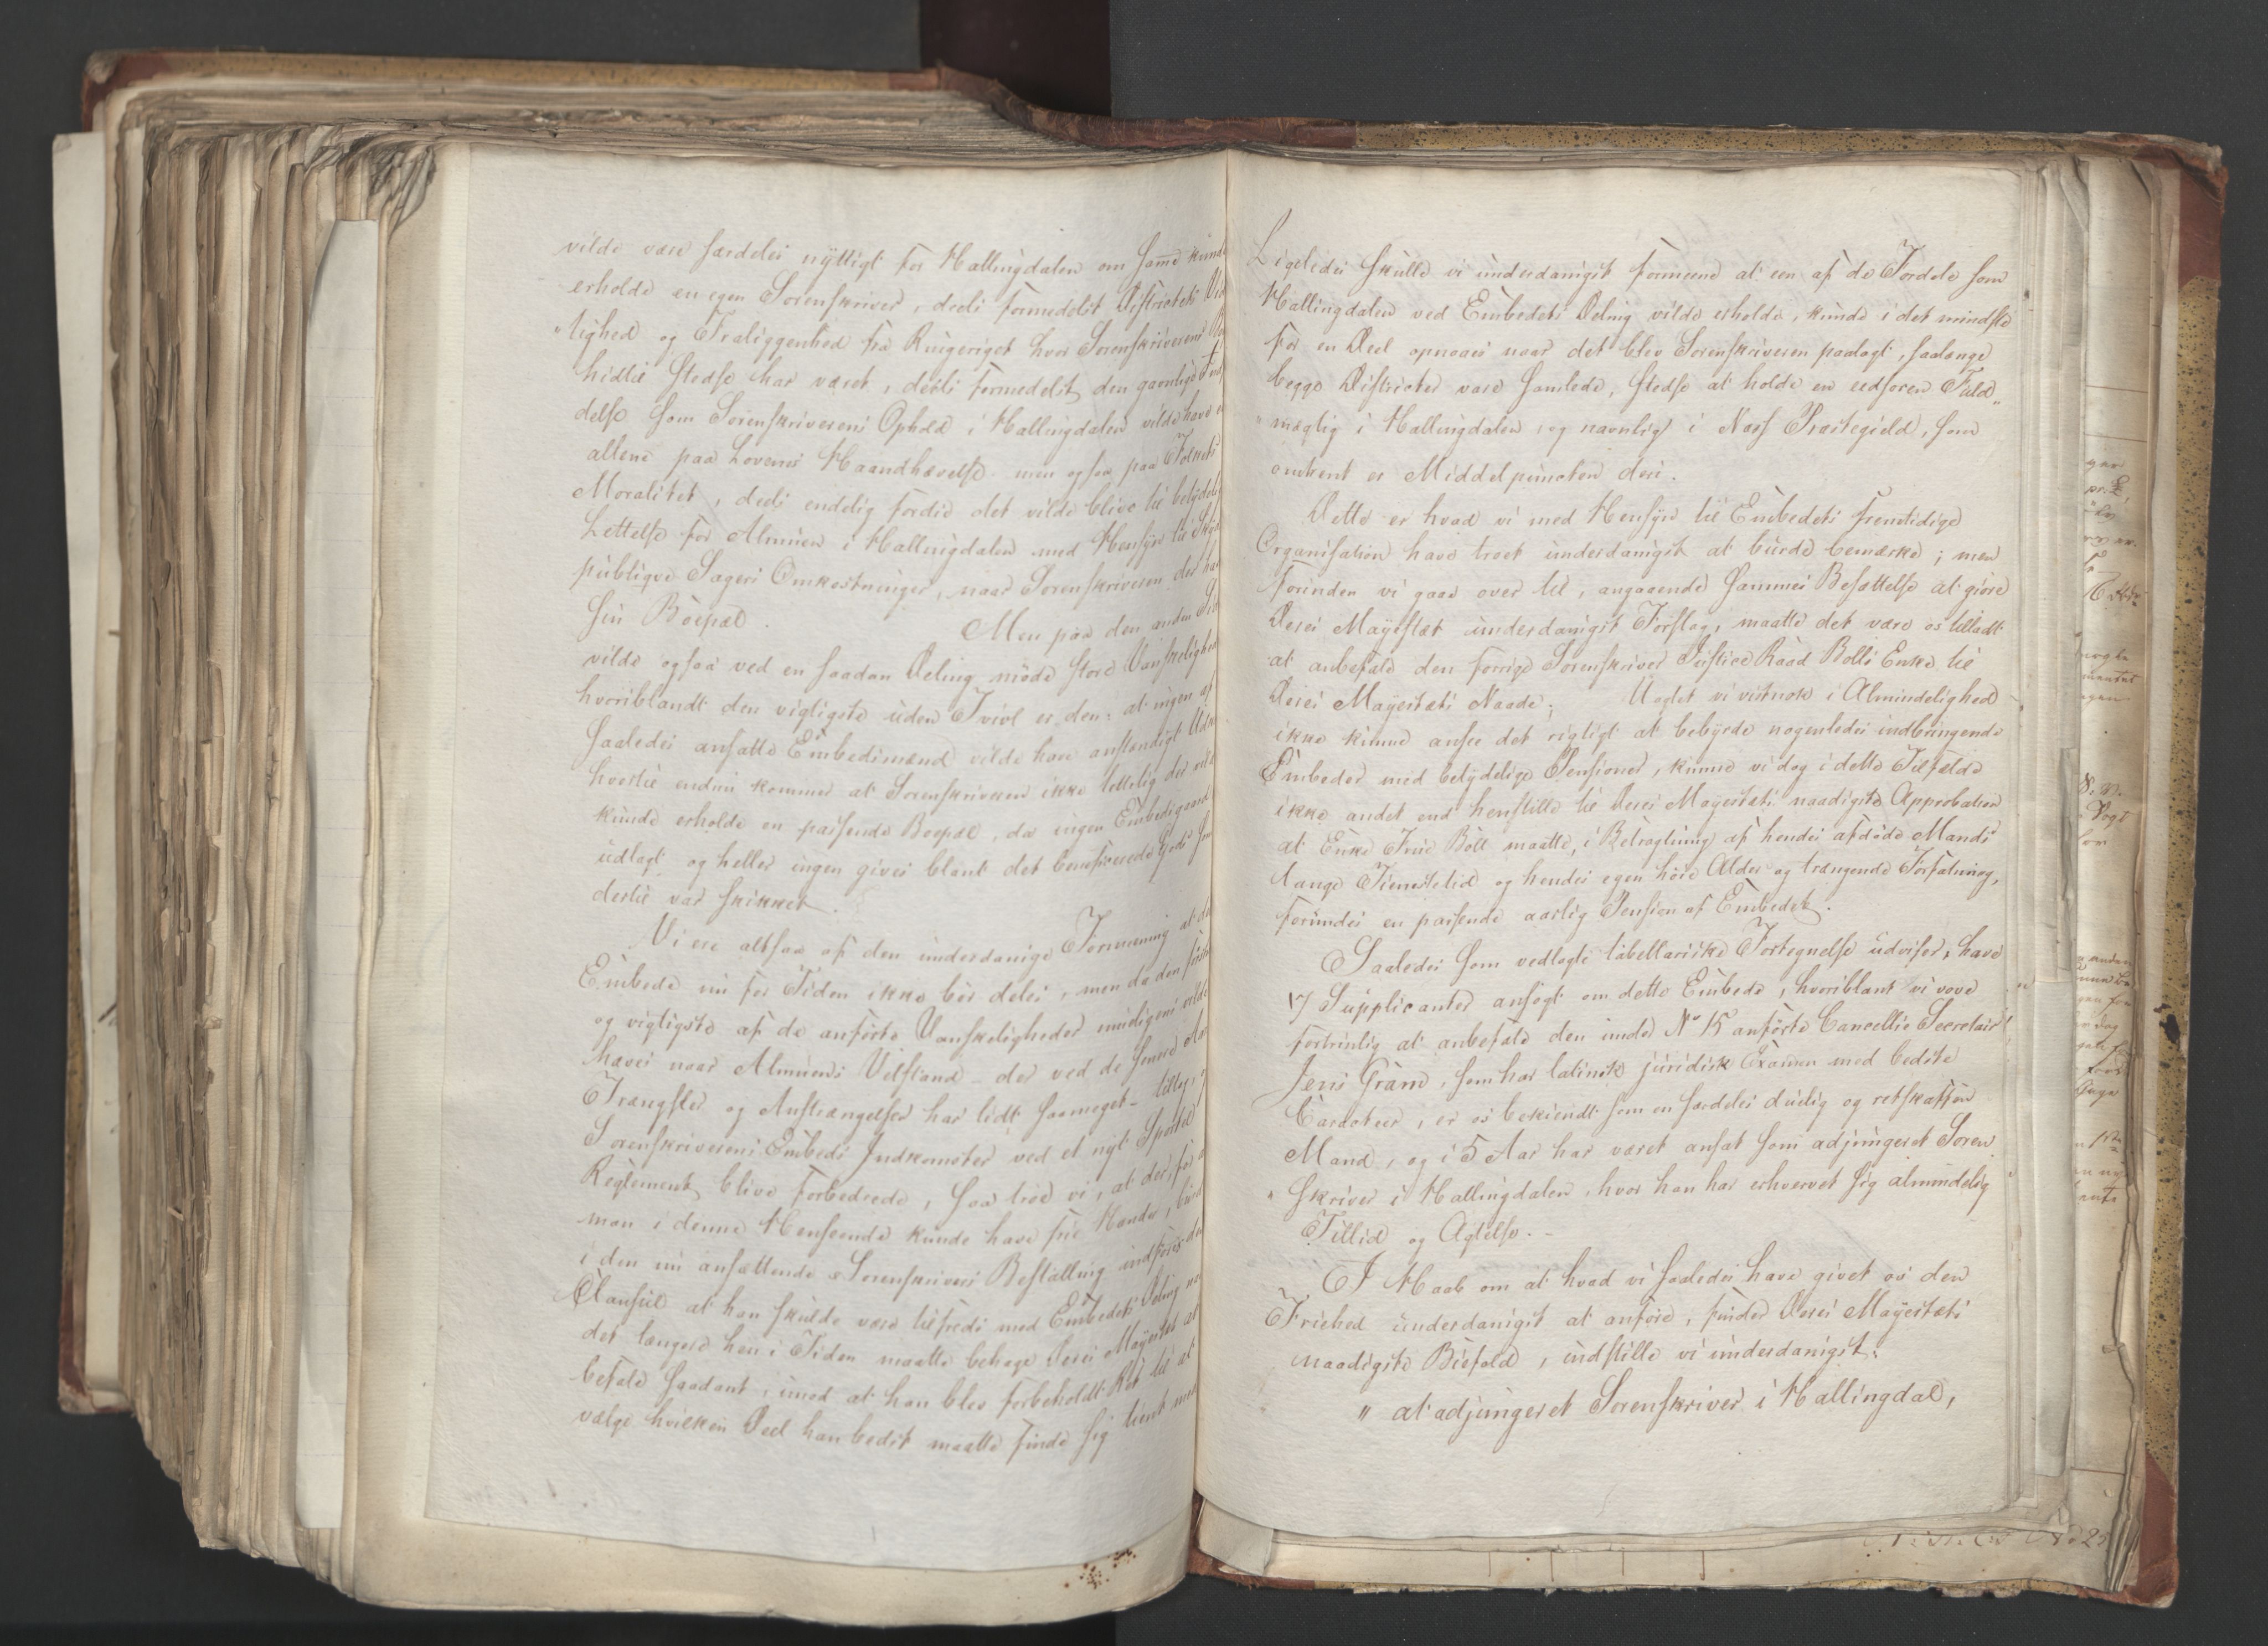 vilde være særdeles nyttigt for Hallingdalen om samme kunde
erholde en egen Sorenskriver, deels formedelst Districtets
lighed og Fraliggenhed fra Ringeriget hvor Sorenskriverens
hidtil stedse har været, deels formedelst den gavnlige
delse som Sorenskriverens Ophold i Hallingdalen vilde have
allene paa Lovenes Haandhævelse men ogsaa paa Folkets
Moralitet, deels endelig fordie det vilde blive til betydelig
Lettelse for Almuen i Hallingdalen med Hensyn til
publique Sagers Omkostninger, naar Sorenskriveren der har
sin Boepæl. Men paa den anden
vilde ogsaa ved en saadan Deling møde store Vanskeligheder
hvoriblandt den vigtigste uden Tvivl er den: at ingen af
saaledes ansatte Embedsmænd vilde have anstændigt
hvortil endnu kommer at Sorenskriveren ikke lettelig der
kunde erholde en passende Boepæl, da ingen Embedsgaard
udlagt og heller ingen gives blant det beneficerede Gods
dertil var skikket.
Vi ere altsaa af den underdanige Formening at
Embede nu for Tiden ikke bør deles, men da den første
og vigtigste af de anførte Vanskeligheder muligens vilde
haves naar Almuens Velstand - der ved de senere
Trængsler og Anstrængelser har lidt saameget -
Sorenskriverens Embeds Indkomster ved et nyt Sportel
Reglement blive forbedrede, saa troe vi, at der, for at
man i denne Henseende kunde have frie Hænder, burde
i den nu ansættende Sorenskrivers Bestalling indføres den
Clausul at han skulde være tilfreds med Embedets Deling
det længere hen i Tiden maatte behage Deres Majestæt at
befale saadant, imod at han blev forbeholdt Ret til at
vælge hvilken Deel han bedst maatte finde sig tient med
Ligeledes skulle vi underdanigst formeene at een af de Fordele som
Hallingdalen ved Embedets Deling vilde erholde, kunde i det mindste
for en Deel opnaaes naar det blev Sorenskriveren paalagt, saalænge
begge Districter vare samlede, stedse at holde en eedsoren Fuld„
„mægtig i Hallingdalen, og navnlig i Næss Præstegield, som
omtrent er Middelpuncten deri.
Dette er hvad vi med Hensyn til Embedets fremtidige
Organisation have troet underdanigst at burde bemærke; men
forinden vi gaae over til, angaaende sammes Besættelse at giøre
Deres Mayestæt underdanigst Forslag, maatte det være os tilladt
at anbefale den forrige Sorenskriver Justice Raad Bolls Enke til
Deres Mayestæts Naade; Uagtet vi vistnok i Almindelighed
ikke kunne ansee det rigtigt at bebyrde nogenledes indbringende
Embeder med betydelige Pensioner, kunne vi dog i dette Tilfælde
ikke andet end henstille til Deres Mayestæts naadigste Approbation
at Enke Frue Boll maatte, i Betragtning af hendes afdøde Mands
lange Tienestetid og hendes egen høie Alder og trængende Forfatning,
forundes en passende aarlig Pension af Embedet.
Saaledes som vedlagte tabellariske Fortegnelse udviser, have
17 Supplicanter ansøgt om dette Embede, hvoriblant vi vove
fortrinlig at anbefale den under No 15 anførte Cancellie Secretair
Jens Gram, som har latinsk juridisk Examen med bedste
Caracteer, er os bekiendt som en særdeles duelig og retskaffen
Mand, og i 5 Aar har været ansat som adjungeret Soren„
„skriver i Hallingdalen, hvor han har erhvervet sig almindelig
Tillid og Agtelse. -
I Haab om at hvad vi saaledes have givet os den
Friehed underdanigst at anføre, finder Deres Mayestæts
naadigste Biefald, indstille vi underdanigst:
" at adjungeret Sorenskriver i Hallingdal,